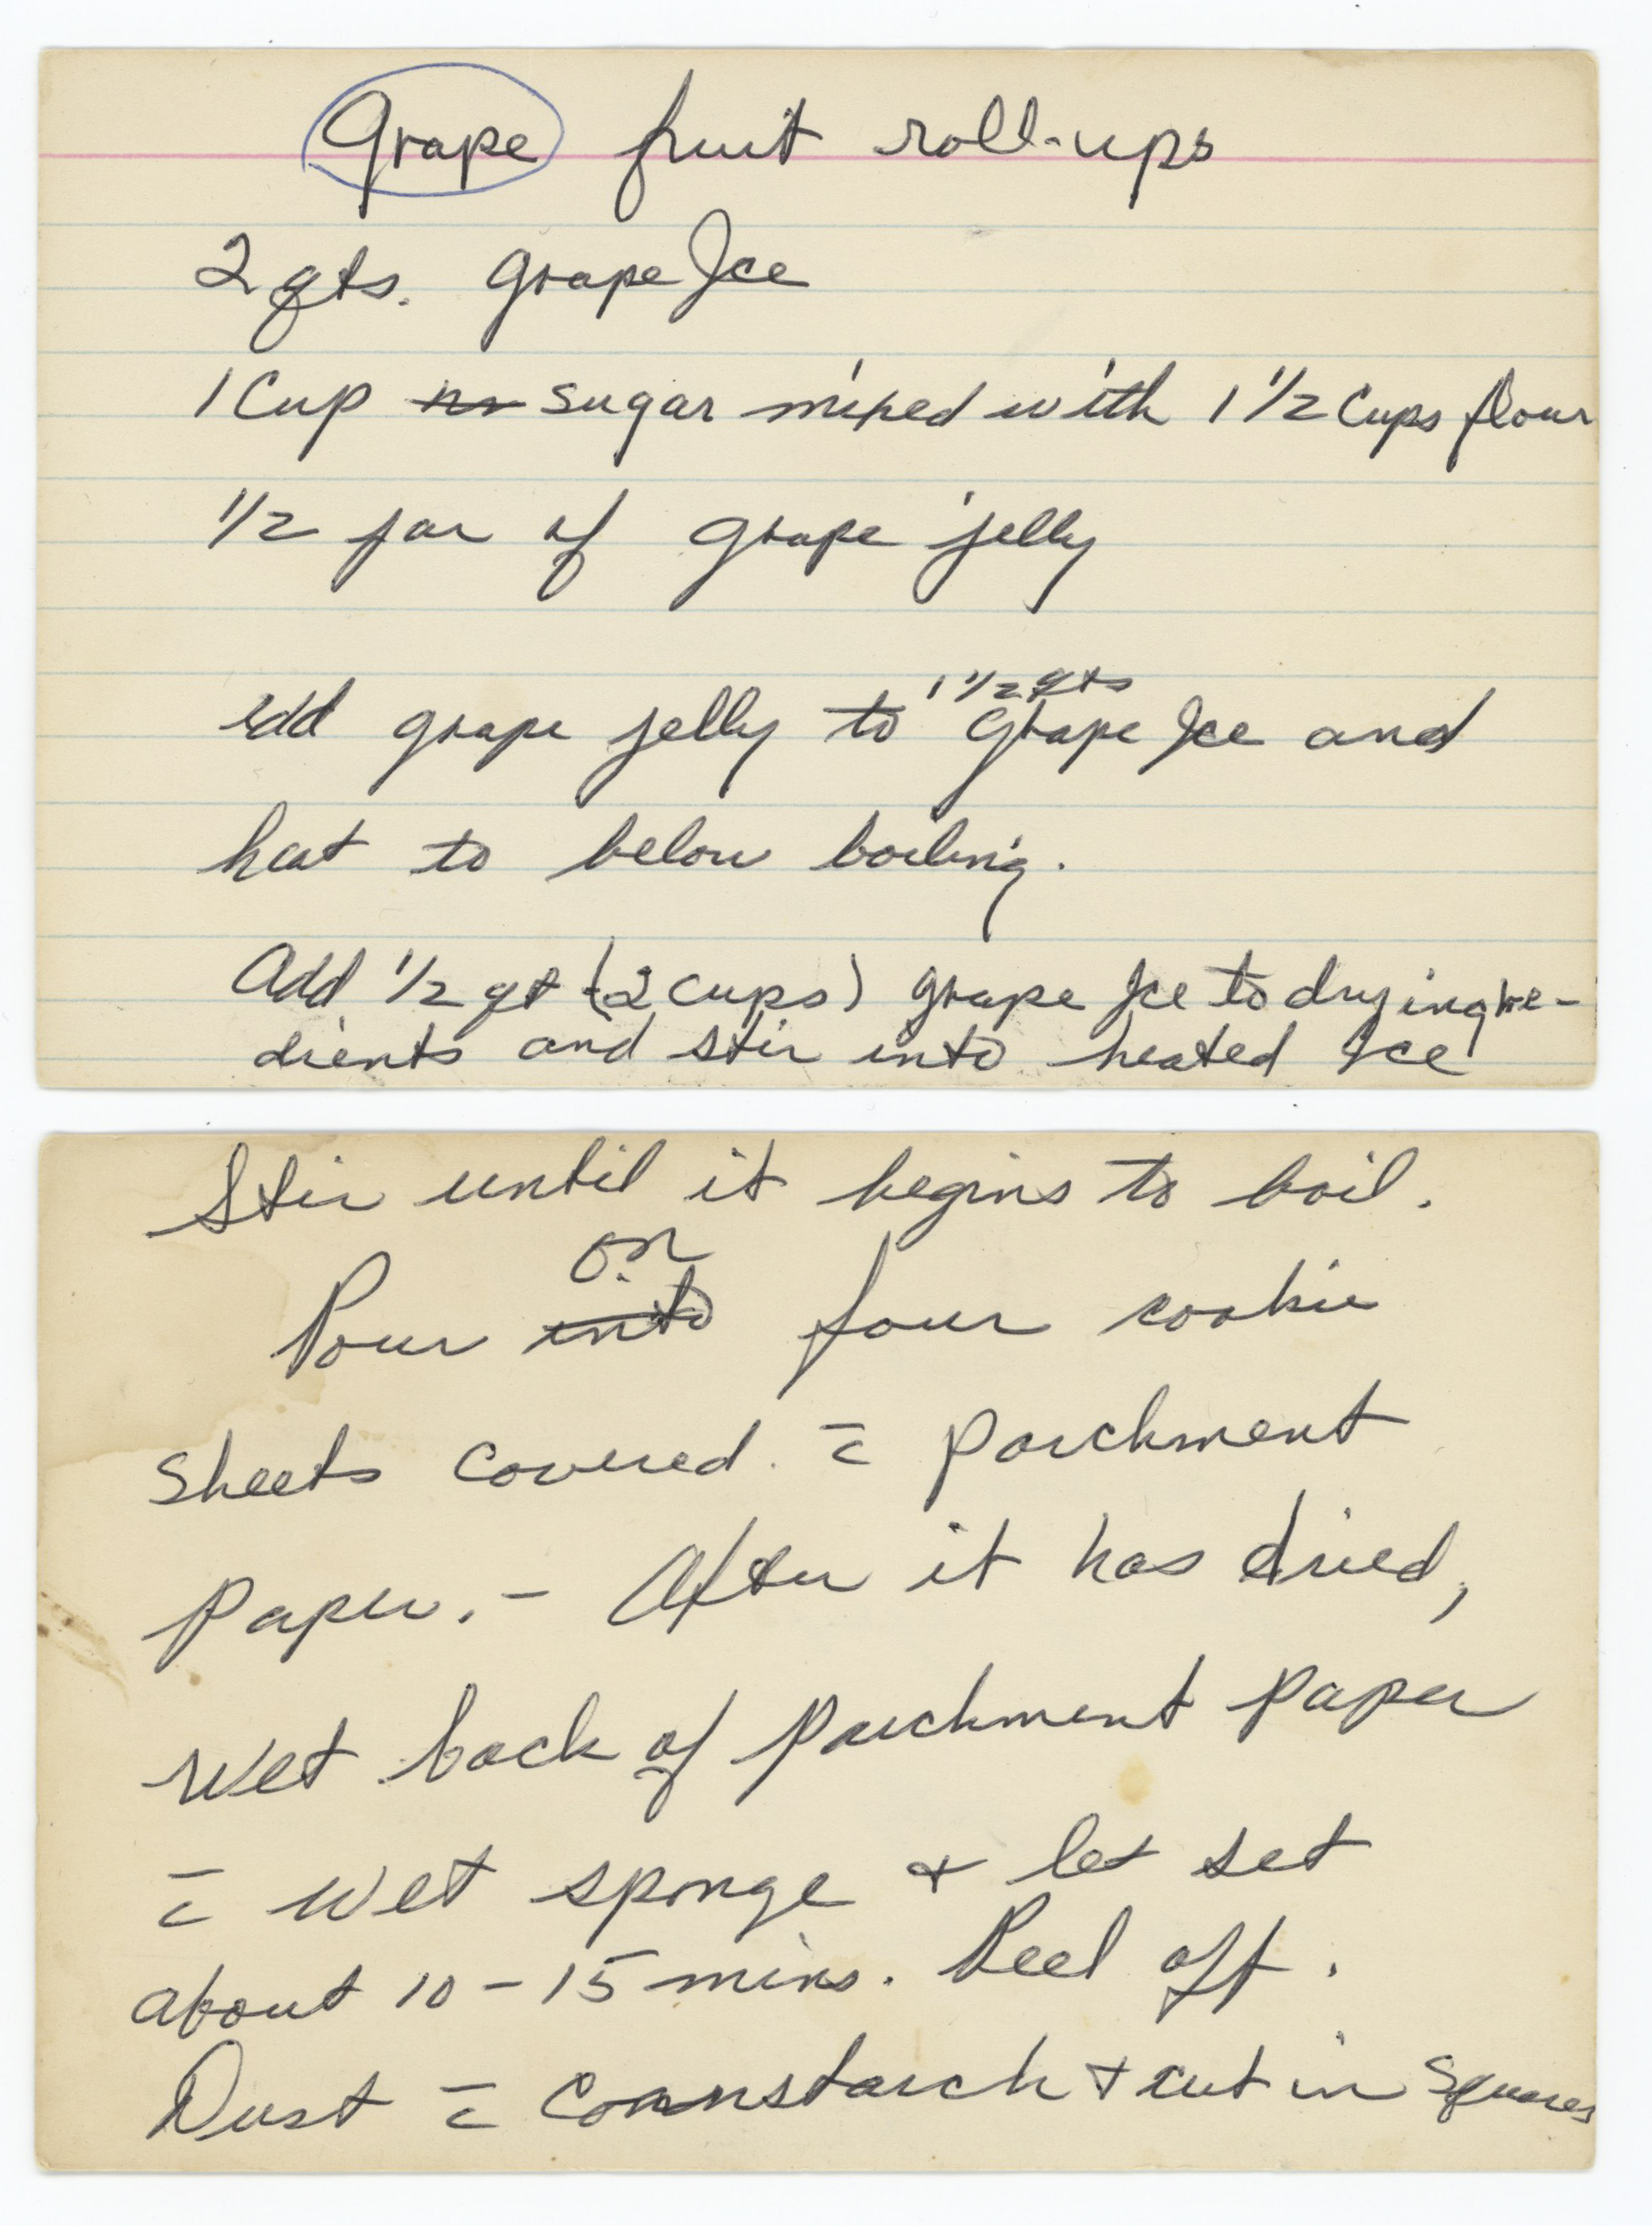 Grape fruit roll-ups
2 qts. Grape Ice
1 Cup sugar mixed with 1 1/2 Cups flour
1/2 jar of grape jelly
1 1/2 qts
add grape jelly to Grape Ice and
heat to below boiling.
Add 1/2 qt (2 cups) grape Ice to dry ingre-
dients and stir into heated Ice
Stir until it begins to boil.
on
Pour into four cookie
sheets covered c̄ parchment
paper. - After it has dried,
wet back of parchment paper
c̄ wet sponge & let set
about 10-15 mins. Peel off.
Dust c̄ cornstarch + cut in squares